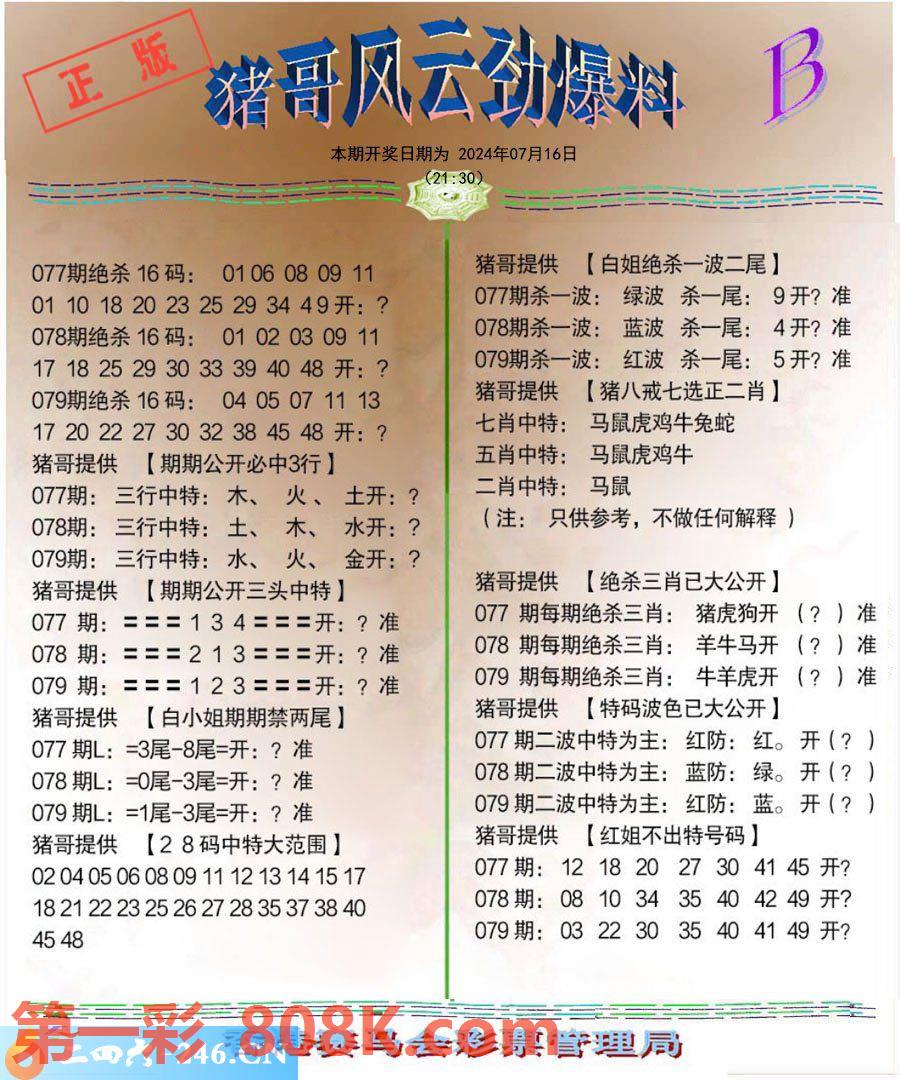 正版
猪哥风云劲爆料
B
本期开奖日期为 2024年07月16日
(21:30)
077期绝杀16码： 01 06 08 09 11
01 10 18 20 23 25 29 34 49开：?
078期绝杀16码： 01 02 03 09 11
17 18 25 29 30 33 39 40 48 开：?
079期绝杀16码： 04 05 07 11 13
17 20 22 27 30 32 38 45 48 开：?
猪哥提供 【期期公开必中3行】
077期： 三行中特：木、 火、 土开：?
078期： 三行中特：土、 木、 水开：?
079期： 三行中特：水、 火、 金开：?
猪哥提供 【期期公开三头中特】
077 期：===134===开：? 准
078 期：===213===开：? 准
079 期：===123===开：? 准
猪哥提供 【白小姐期期禁两尾】
077期L：=3尾-8尾=开：? 准
078期L：=0尾-3尾=开：? 准
079期L：=1尾-3尾=开：? 准
猪哥提供 【28码中特大范围】
02 04 05 06 08 09 11 12 13 14 15 17
18 21 22 23 25 26 27 28 35 37 38 40
45 48
猪哥提供 【白姐绝杀一波二尾】
077期杀一波： 绿波 杀一尾： 9开? 准
078期杀一波： 蓝波 杀一尾： 4开? 准
079期杀一波： 红波 杀一尾： 5开? 准
猪哥提供 【猪八戒七选正二肖】
七肖中特： 马鼠虎鸡牛兔蛇
五肖中特： 马鼠虎鸡牛
二肖中特： 马鼠
（注： 只供参考，不做任何解释 ）
猪哥提供 【绝杀三肖已大公开】
077 期每期绝杀三肖： 猪虎狗开 （? ）准
078 期每期绝杀三肖： 羊牛马开 （? ）准
079 期每期绝杀三肖： 牛羊虎开 （? ）准
猪哥提供 【特码波色已大公开】
077期二波中特为主：红防：红。开(? )
078期二波中特为主：蓝防：绿。开(? )
079期二波中特为主：红防：蓝。开(? )
猪哥提供 【红姐不出特号码】
077期： 12 18 20 27 30 41 45 开?
078期： 08 10 34 35 40 42 49 开?
079期： 03 22 30 35 40 41 49 开?
第一彩 808K.com
二四六-246.CN
彩票管理局